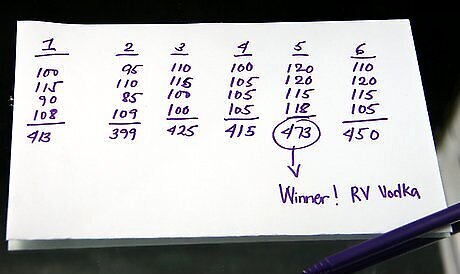 1 2 3 4 5 6
100 95 110 100 120 110
115 110 115 105 120 120
90 85 100 105 115 115
108 109 100 105 118 105
413 399 425 415 473 450
Winner! RV Vodka